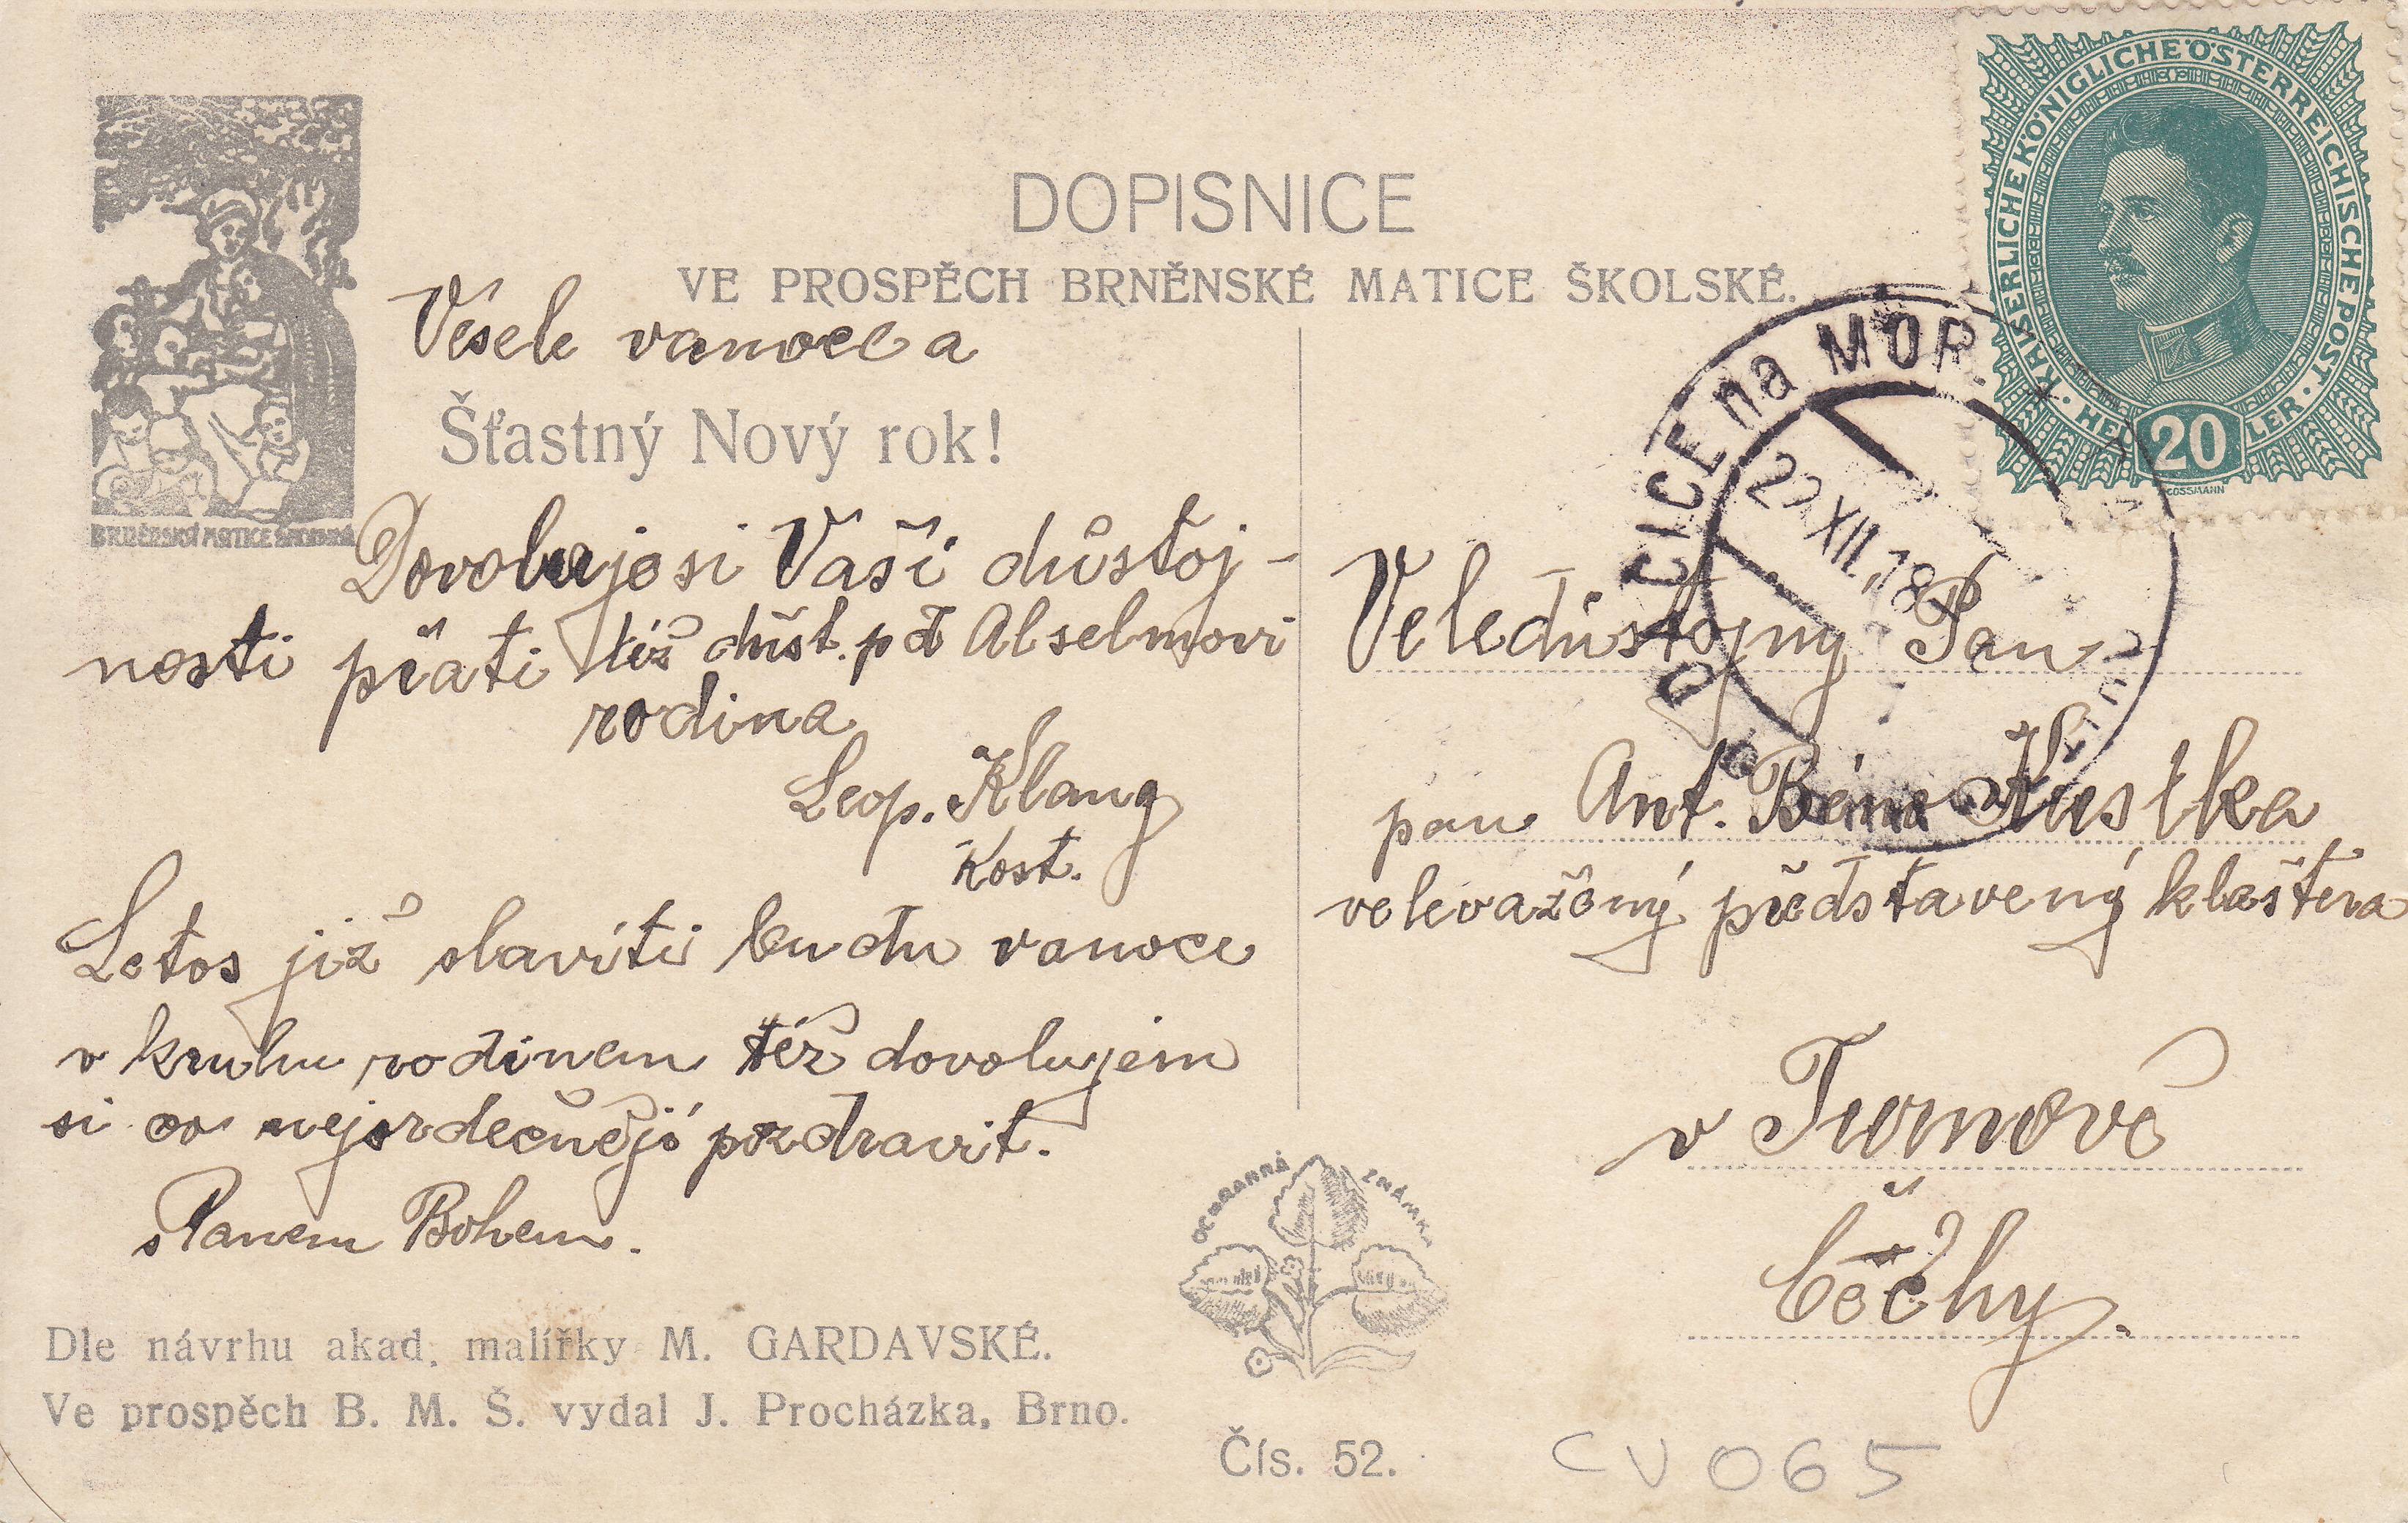 DOPISNICE
VE PROSPĚCH BRNĚNSKÉ MATICE ŠKOLSKÉ.
BRNĚNSKÉ MATICE ŠKOLSKÉ
KAISERLICHE KÖNIGLICHE ÖSTERREICHISCHE POST
HELLER
20
COSSMANN
CICE na MOR.
XII. 18
Vesele vanoce a
Šťastný Nový rok!
Dovoluje si Vaši důstoj-
nosti přati též důst. p Abselmovi
rodina
Leop. Klang
Kost.
Letos již slaviti budu vanoce
v kruhu rodinem též dovolujem
si co nejsrdečněji pozdravit.
s Panem Bohem.
Veledůstojny Pan
pan Ant. Kustka
velevažený představený klaštera
v Turnově
Čechy.
Dle návrhu akad. malířky M. GARDAVSKÉ.
Ve prospěch B. M. Š. vydal J. Procházka, Brno.
OCHRANNÁ ZNÁMKA
Čís. 52.
CV065